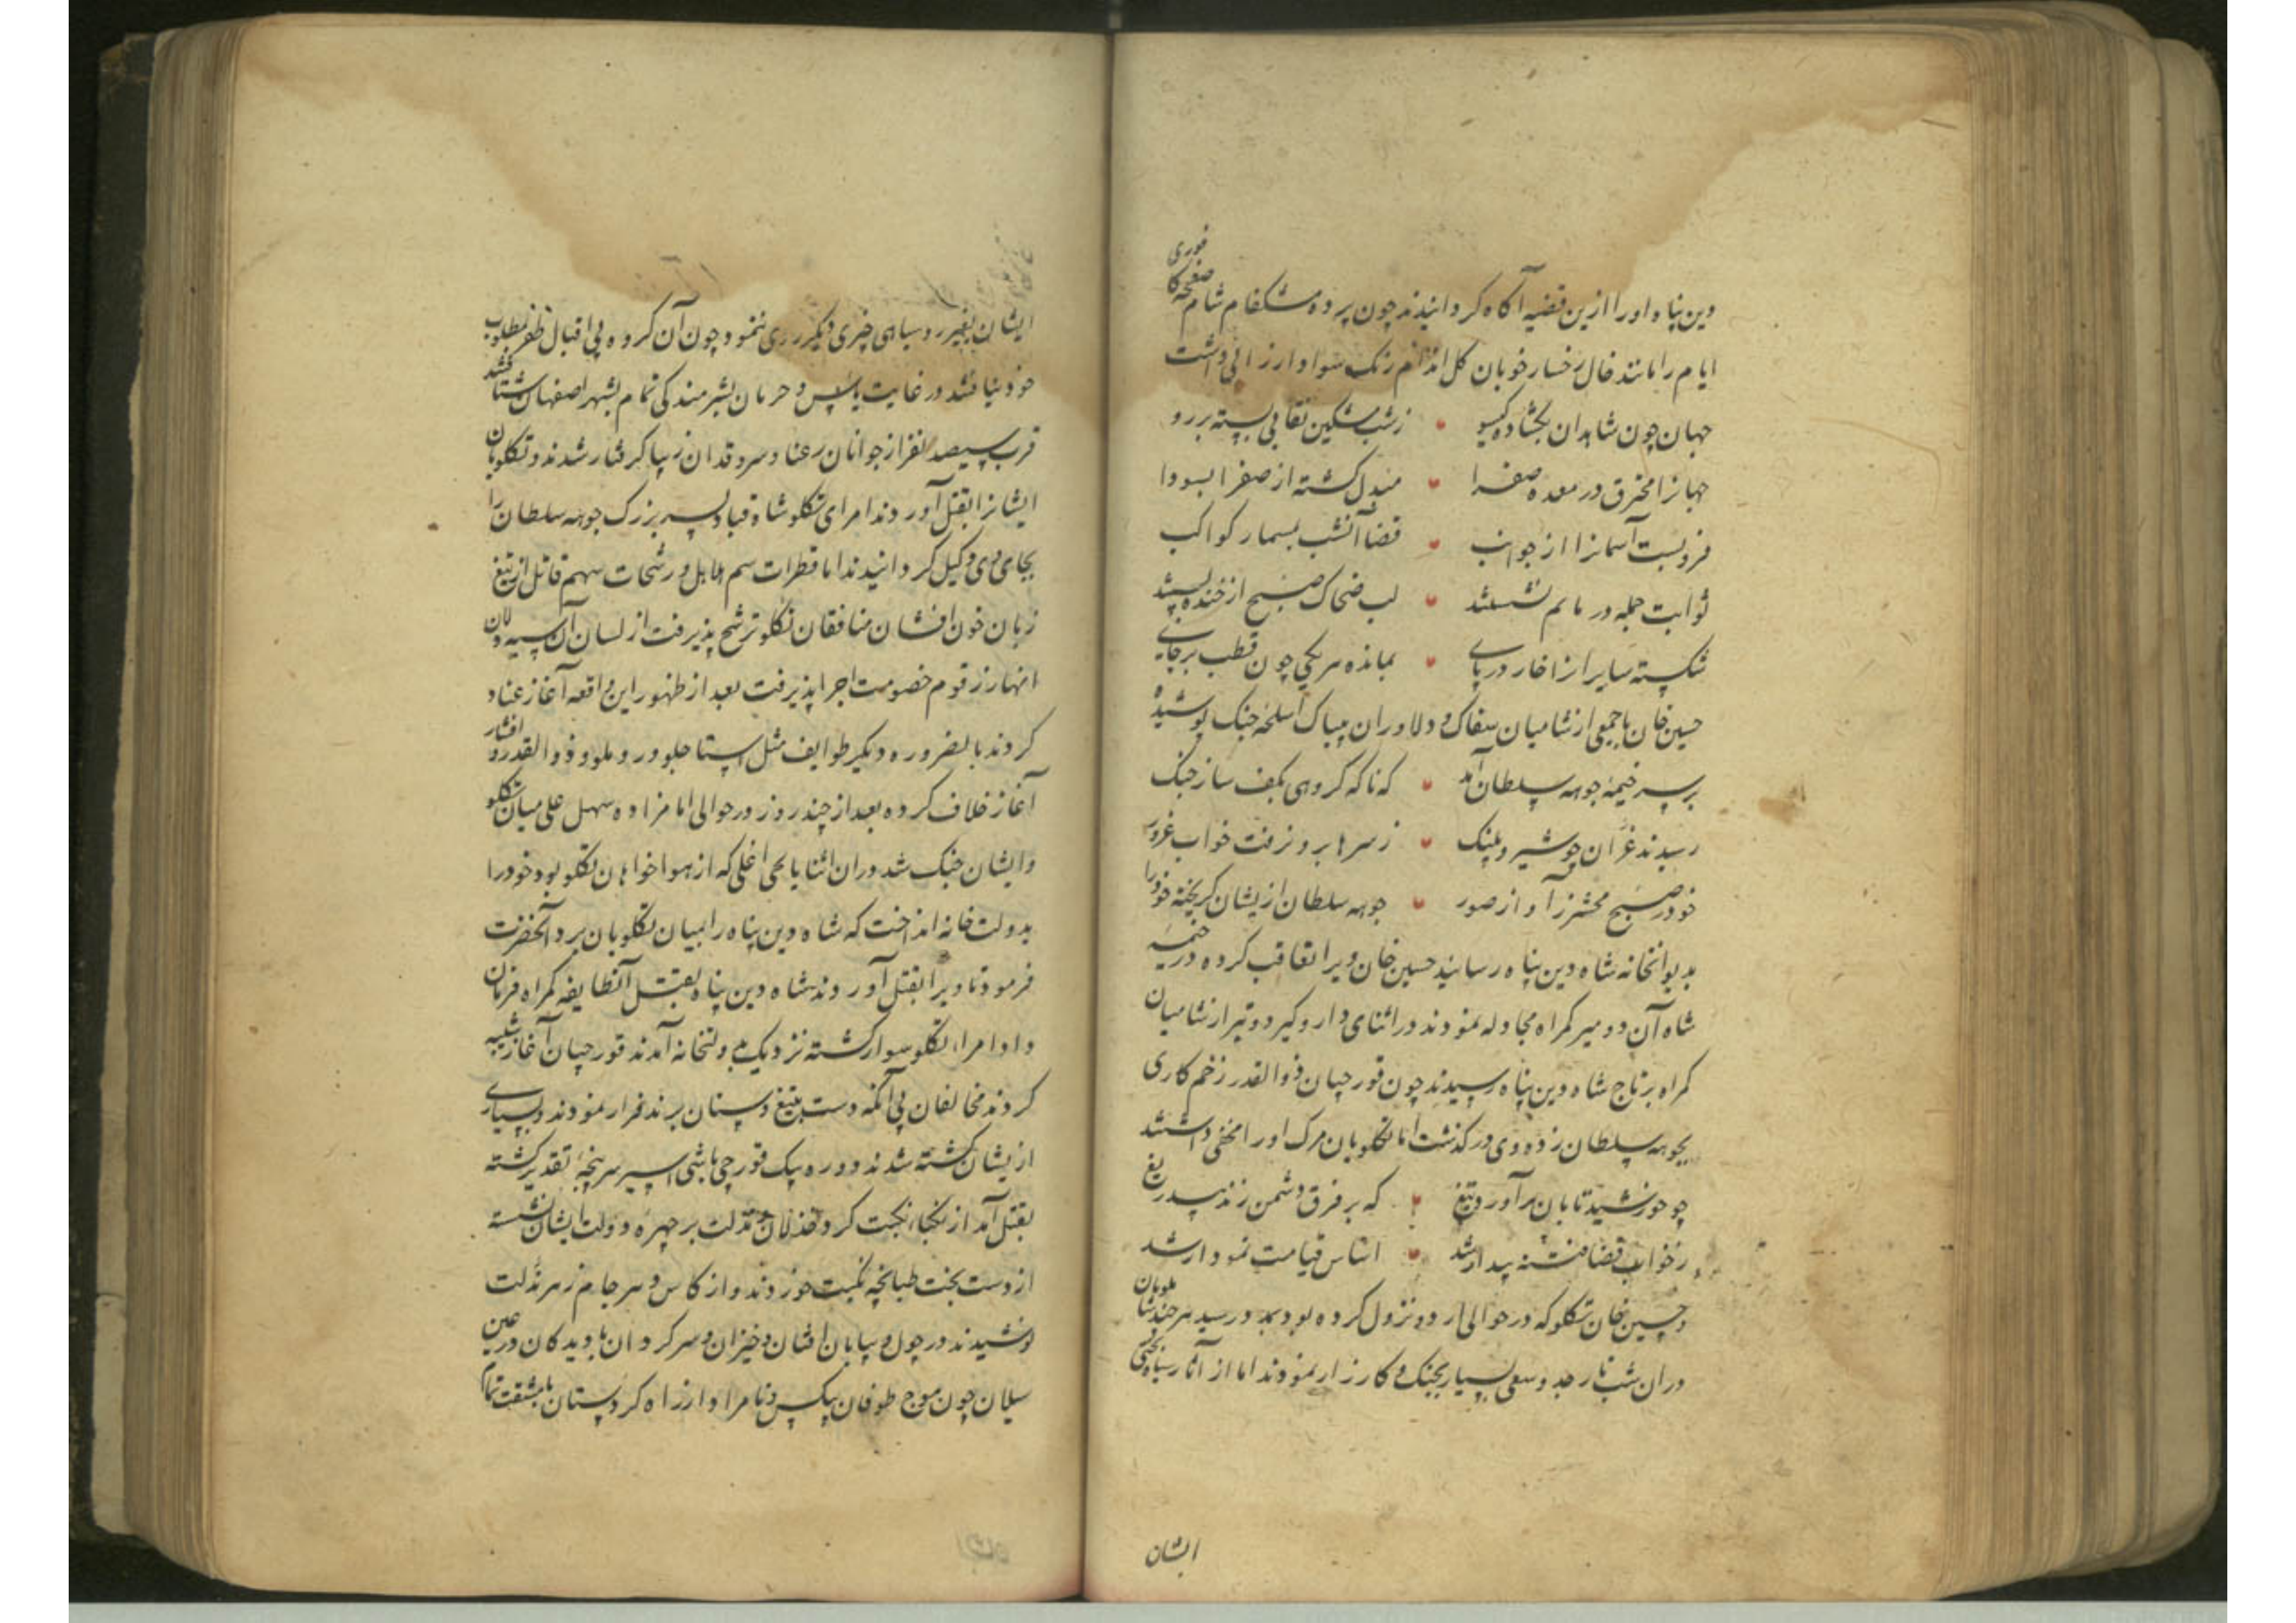 دین پناه او را ازین قضیه آگاه کردانیدند چون پرده مشکفام شام صفحه کافوری
ایام را مانند خال رخسار خوبان کل اندام رنک سواد ارزانی داشت
جهان چون شاهدان بکشاده کیسو زشب مشکین نقابی بسته بر رو
جهانرا محترق در معده صفرا مبدل کشته از صفرا بسودا
فرو بست آسمانرا از جوانب قضا آنشب بمسمار کواکب
ثوابت جمله در ماتم نشستند لب ضحاک صبح از خنده بستند
شکسته سایرانرا خار در پای بمانده هر یکی چون قطب بر جای
حسین خان با جمعی از شامیان سفاک و دلاوران بیباک اسلحه جنک پوشیده
بر سر خیمه جوهه سلطان آمد که ناکه کروهی بکف ساز جنک
رسیدند غران چو شیر و پلنک ز سرها برون رفت خواب غرور
خود در صبح محشر ز آواز صور جوهه سلطان ازیشان کریخته خود را
بدیوانخانه شاه دین پناه رسانید حسین خان ویرا تعاقب کرده در خیمه
شاه آن دو میر کمراه مجادله نمودند در اثنای دار و کیر دو تیر از شامیان
کمراه بر تاج شاه دین پناه رسیدند چون قورچیان ذوالقدر زخم کاری
بجوهه سلطان زده وی در کذشت اما تکلویان مرک او را مخفی داشتند
چو خورشید تابان برآورد تیغ که بر فرق دشمن زند بیدریغ
ز خواب قضا فتنه بیدار شد اساس قیامت نمودار شد
و حسین خان تکلو که در حوالی اردو نزول کرده بود بمدد رسید هر چند شاملویان
در ان شب تار جد و سعی بسیار بجنک و کارزار نمودند اما از آثار سیاه بختی
ایشان
ایشان بغیر رو سیاهی چیزی دیکر روی ننمود و چون آن کروه بی اقبال ظفر مطلوب
خود نیافتند در غایت یأس و حرمان بشرمندکی تمام بشهر اصفهان شتافتند
قرب سیصد نفر از جوانان رعنا و سرو قدان زیبا کرفتار شدند و تکلویان
ایشانرا بقتل آوردند امرای تکلو شاه قباد پسر بزرک جوهه سلطان را
بجای وی وکیل کردانیدند اما قطرات سم هلاهل و رشحات سهم قاتل از تیغ
زبان خون افشان منافقان تکلو ترشح پذیرفت از لسان آن سیه دلان
انهار زقوم خصومت اجرا پذیرفت بعد از ظهور این واقعه آغاز عناد
کردند بالضروره دیکر طوایف مثل استاجلو و روملو و ذوالقدر و افشار
آغاز خلاف کرده بعد از چند روز در حوالی امامزاده سهل علی میان تکلو
و ایشان جنک شد در ان اثنا یا یحیی اغلی که از هوا خواهان تکلو بود خود را
بدولت خانه انداخت که شاه دین پناه را بمیان تکلویان برد آنحضرت
فرمود تا ویرا بقتل آوردند شاه دین پناه بقتل آنطایفه کمراه فرمان
داد امراء تکلو سوار کشته نزدیک بدولتخانه آمدند قورچیان آغاز شیبه
کردند مخالفان بی آنکه دست بتیغ و سنان برند فرار نمودند و بسیاری
ازیشان کشته شدند و دوره بیک قورچی باشی اسیر سرپنجه تقدیر کشته
بقتل آمد از آنجا، نکبت کرد خذلان و مذلت بر چهره دولت ایشان نشسته
از دست بخت طپانچه نکبت خوردند و از کاس دهر جام زهر مذلت
نوشیدند در چول و بیابان افتان و خیزان و سرکردان با دیدکان در عین
سیلان چون موج طوفان بیکس و نامراد از راه کردستان با مشقت تمام